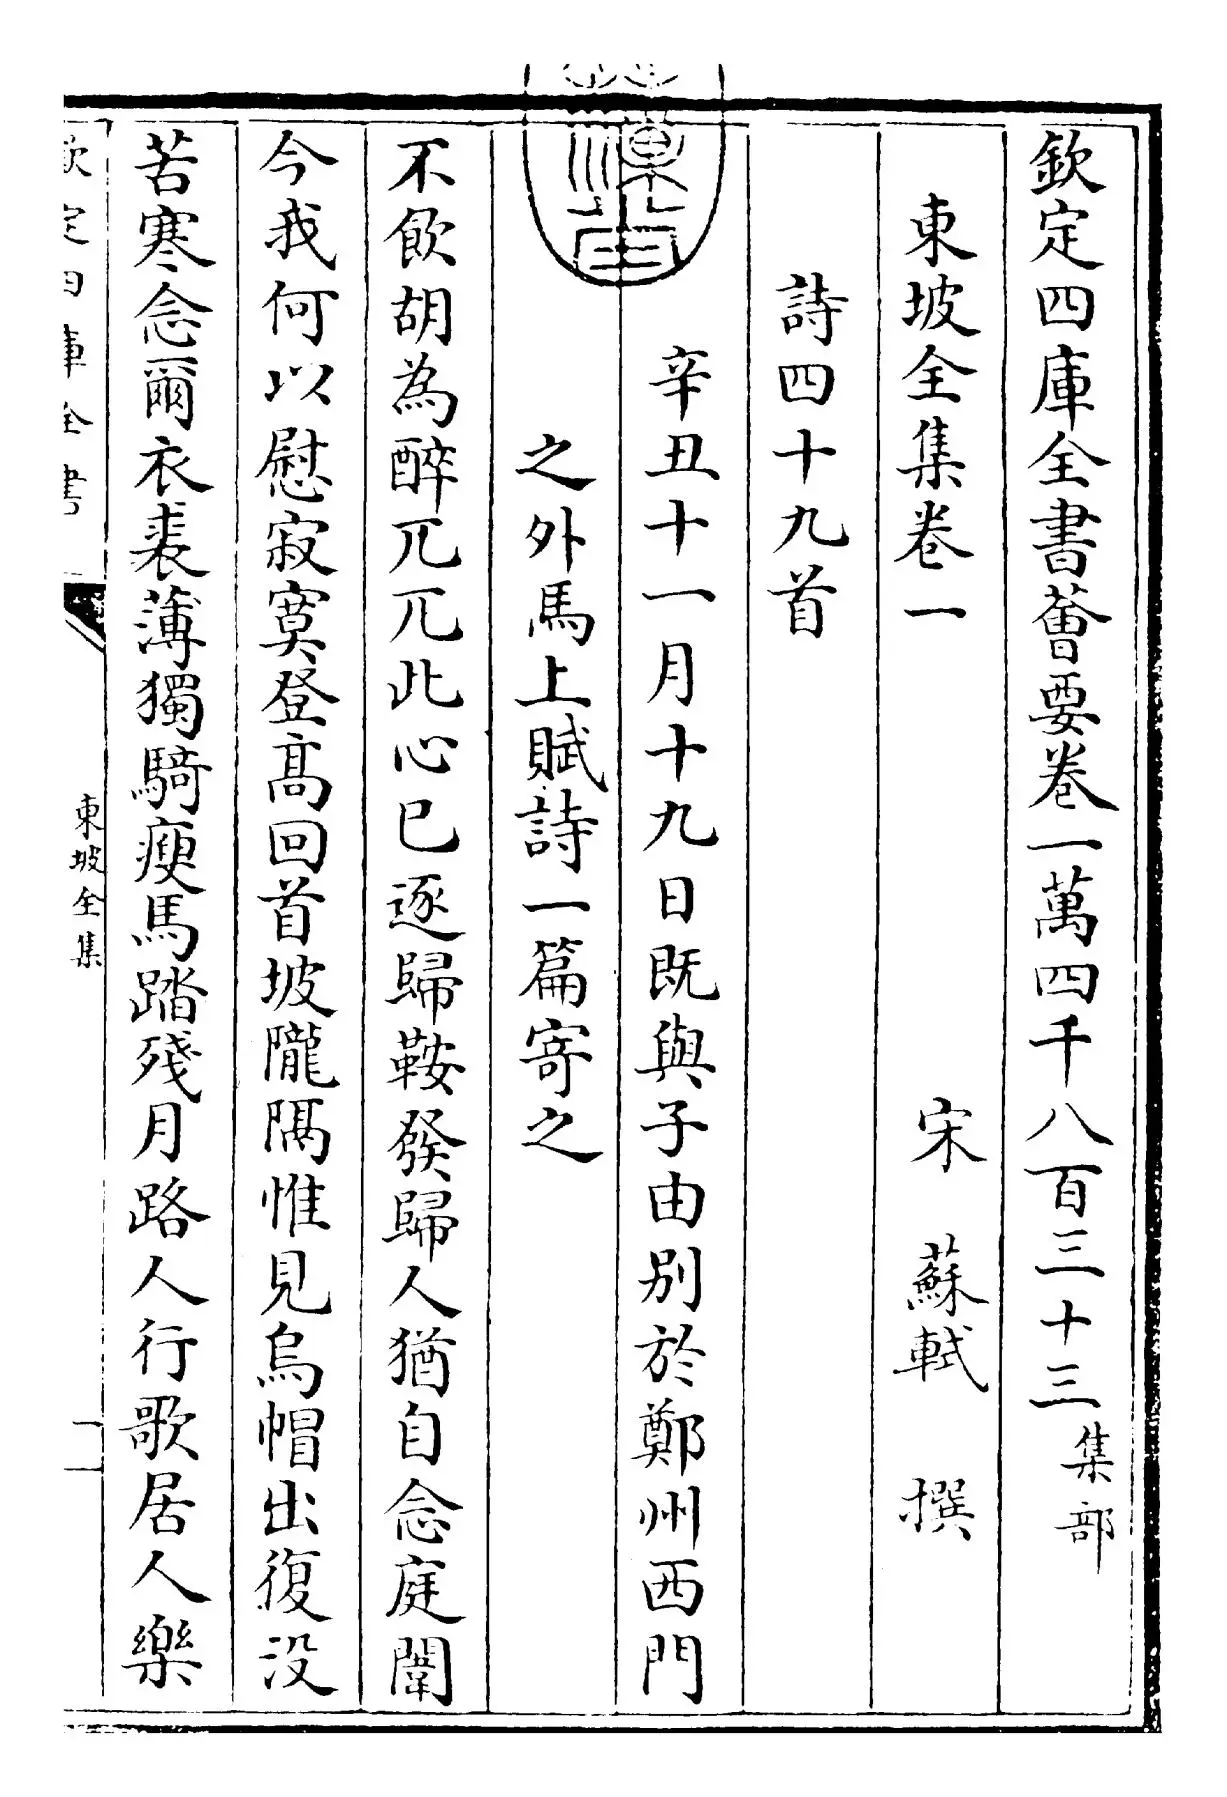 欽定四庫全書薈要卷一萬四千八百三十三集部
東坡全集卷一 宋 蘇軾 撰
詩四十九首
辛丑十一月十九日既與子由別於鄭州西門
之外馬上賦詩一篇寄之
不飲胡為醉兀兀此心已逐歸鞍發歸人猶自念庭闈
今我何以慰寂寞登高回首坡隴隔惟見烏帽出復没
苦寒念爾衣裘薄獨騎瘦馬踏殘月路人行歌居人樂
欽定四庫全書
東坡全集
一